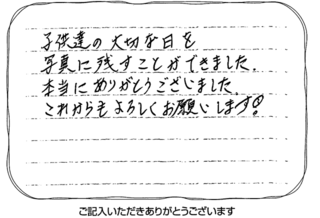 子供達の大切な日を
写真に残すことができました。
本当にありがとうございました。
これからもよろしくお願いします!
ご記入いただきありがとうございます